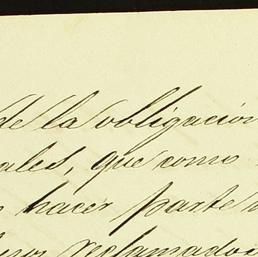 de la obligación
ales, que como
hacer parte
reclamado